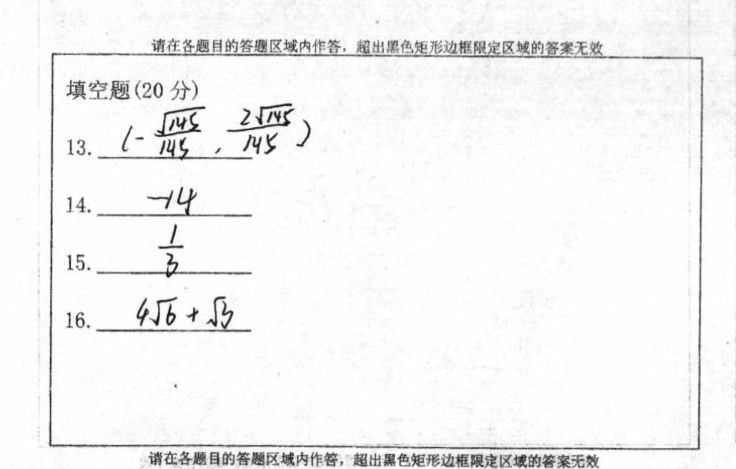 请在各题目的答题区域内作答，超出黑色矩形边框限定区域的答案无效
填空题(20 分)
13. (-√145/145, 2√145/145)
14. -14
15. 1/3
16. 4√6 + √3
请在各题目的答题区域内作答，超出黑色矩形边框限定区域的答案无效